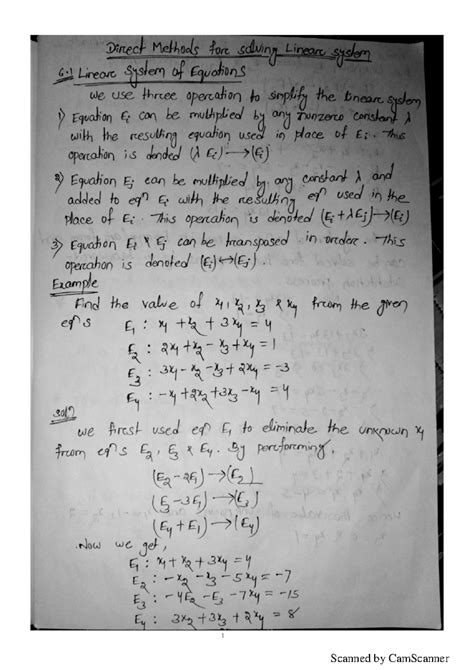 Direct Methods forc solving Linearc system
6.1 Linearc System of Equations
We use threee opercation to simplify the linearc system
1) Equation Ei can be multiplied by any nonzero constant λ
with the resulting equation used in place of Ei. This
opercation is denoted (λ Ei) → (Ei)
2) Equation Ej can be multiplied by any constant λ and
added to eqn Ei with the resulting eqn used in the
place of Ei. This opercation is denoted (Ei + λEj) → (Ei)
3) Equation Ei & Ej can be transposed in orderc. This
opercation is denoted (Ei) ↔ (Ej).
Example
Find the value of x1, x2, x3 & x4 frcom the given
eqns
E1 : x1 + x2 + 3x4 = 4
E2 : 2x1 + x2 - x3 + x4 = 1
E3 : 3x1 - x2 - x3 + 2x4 = -3
E4 : -x1 + 2x2 + 3x3 - x4 = 4
Soln
We first used eqn E1 to eliminate the unknown x1
frcom eqns E2, E3 & E4. By percforcming,
(E2 - 2E1) → (E2)
(E3 - 3E1) → (E3)
(E4 + E1) → (E4)
Now we get,
E1 : x1 + x2 + 3x4 = 4
E2 : -x2 - x3 - 5x4 = -7
E3 : -4E2 - E3 - 7x4 = -15
E4 : 3x2 + 3x3 + 2x4 = 8
1
Scanned by CamScanner